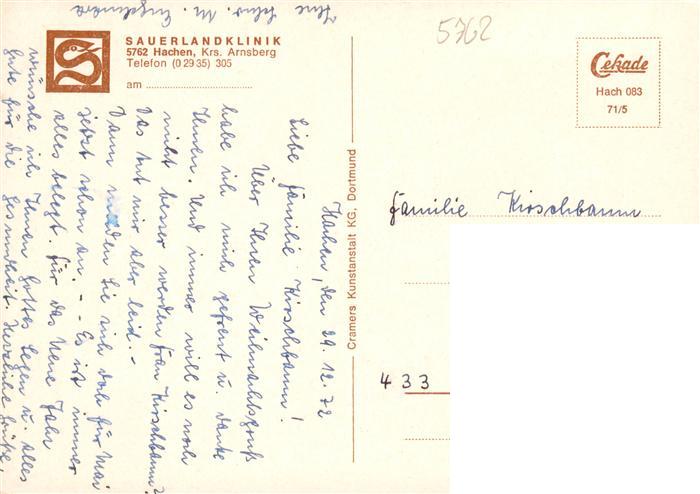 SAUERLANDKLINIK
5762 Hachen, Krs. Arnsberg
Telefon (0 29 35) 305
am
5762
Cekade
Hach 083
71/5
Cramers Kunstanstalt KG, Dortmund
Hachen, den 29. 12. 72
Liebe Familie Kirschbaum!
Über Ihren Weihnachtsgruß
habe ich mich gefreut u. danke
Ihnen. Und immer will es noch
nicht besser werden Frau Kirschbaum?
Das tut mir aber leid. -
Dann melden Sie sich doch für Mai
jetzt schon an. - - Es ist immer
alles belegt. Für das Neue Jahr
wünsche ich Ihnen Gottes Segen u. alles
gute für die Gesundheit. Herzliche Grüße,
Ihre M.
Familie Kirschbaum
433